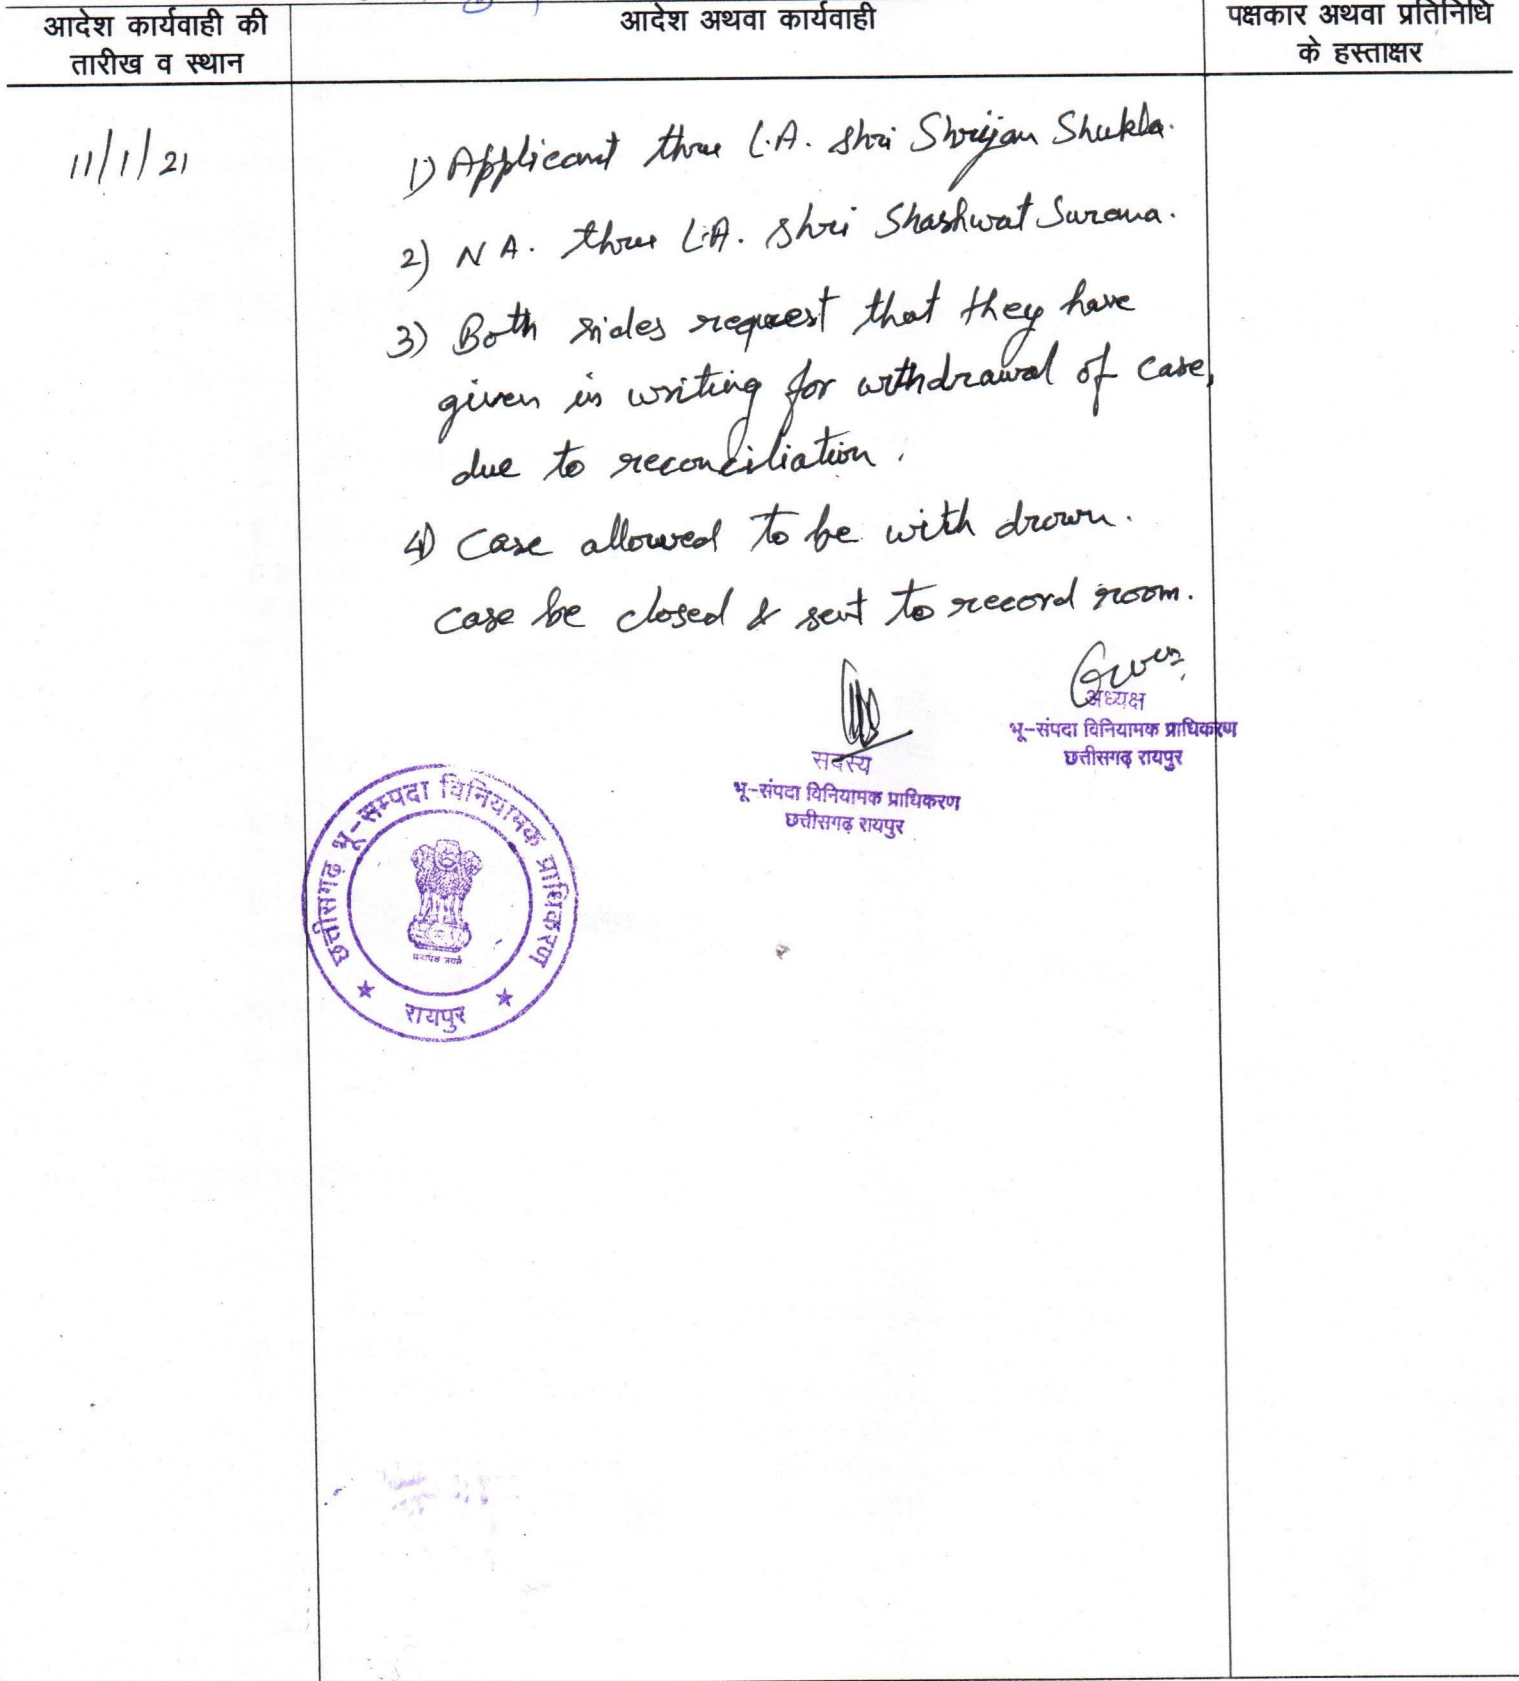 आदेश कार्यवाही की
तारीख व स्थान
आदेश अथवा कार्यवाही
पक्षकार अथवा प्रतिनिधि
के हस्ताक्षर
11/1/21
1) Applicant thru L.A. Shri Shrijan Shukla.
2) N A. thru L.A. Shri Shashwat Surana.
3) Both sides request that they have
given in writing for withdrawal of case,
due to reconciliation.
4) Case allowed to be with drawn.
Case be closed & sent to record room.
अध्यक्ष
भू-संपदा विनियामक प्राधिकरण
छत्तीसगढ़ रायपुर
सदस्य
भू-संपदा विनियामक प्राधिकरण
छत्तीसगढ़ रायपुर
छत्तीसगढ़ भू-सम्पदा विनियामक प्राधिकरण
सत्यमेव जयते
रायपुर